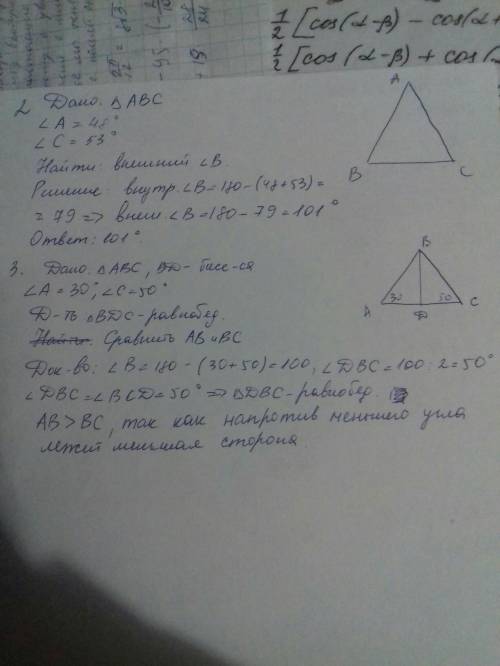 1/2 [cos(α-β) - cos(α+
1/2 [cos(α-β) + cos(
2 Дано. △ABC
∠A = 48°
∠C = 53°
Найти: внешний ∠B.
Решение: внутр. ∠B = 180 - (48+53) =
= 79 => внеш. ∠B = 180 - 79 = 101°
Ответ: 101°.
A
B
C
3. Дано. △ABC, BD - бисс-са
∠A = 30°, ∠C = 50°
Д-ть △BDC - равнобед.
Найти. Сравнить AB и BC
Док-во: ∠B = 180 - (30+50) = 100, ∠DBC = 100 : 2 = 50°
∠DBC = ∠BCD = 50° => △DBC - равнобед.
AB > BC, так как напротив меньшего угла
лежит меньшая сторона
B
A 30 50 C
D